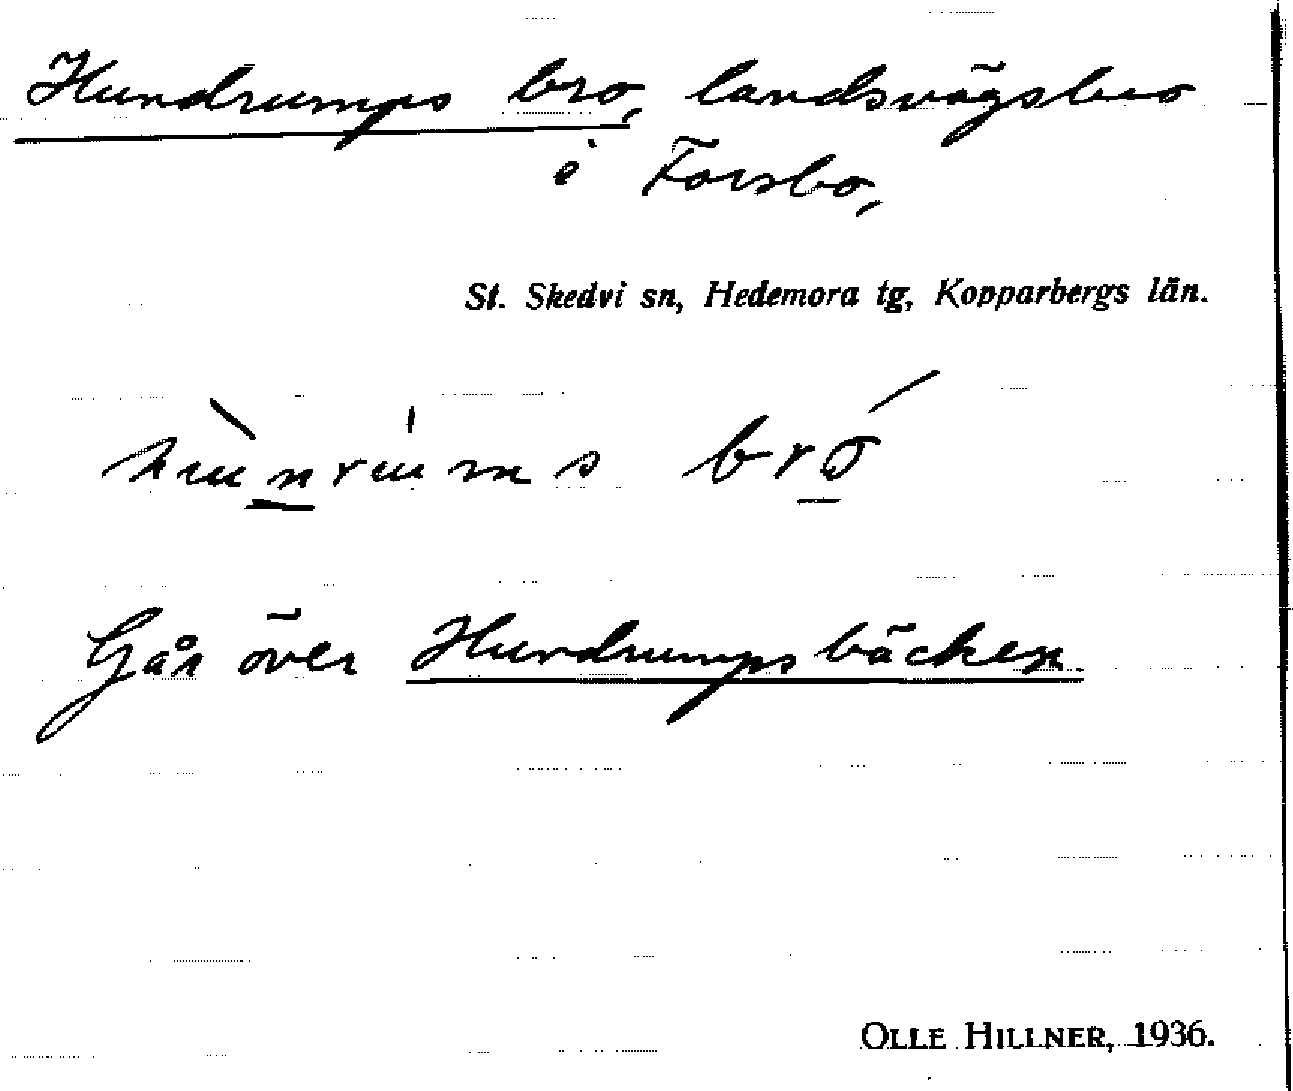 Hundrumps bro, landsvägsbro
i Forsbo,
St. Skedvi sn, Hedemora tg, Kopparbergs län.
hùnrúms bró
Går över Hundrumpsbäcken.
OLLE HILLNER, 1936.